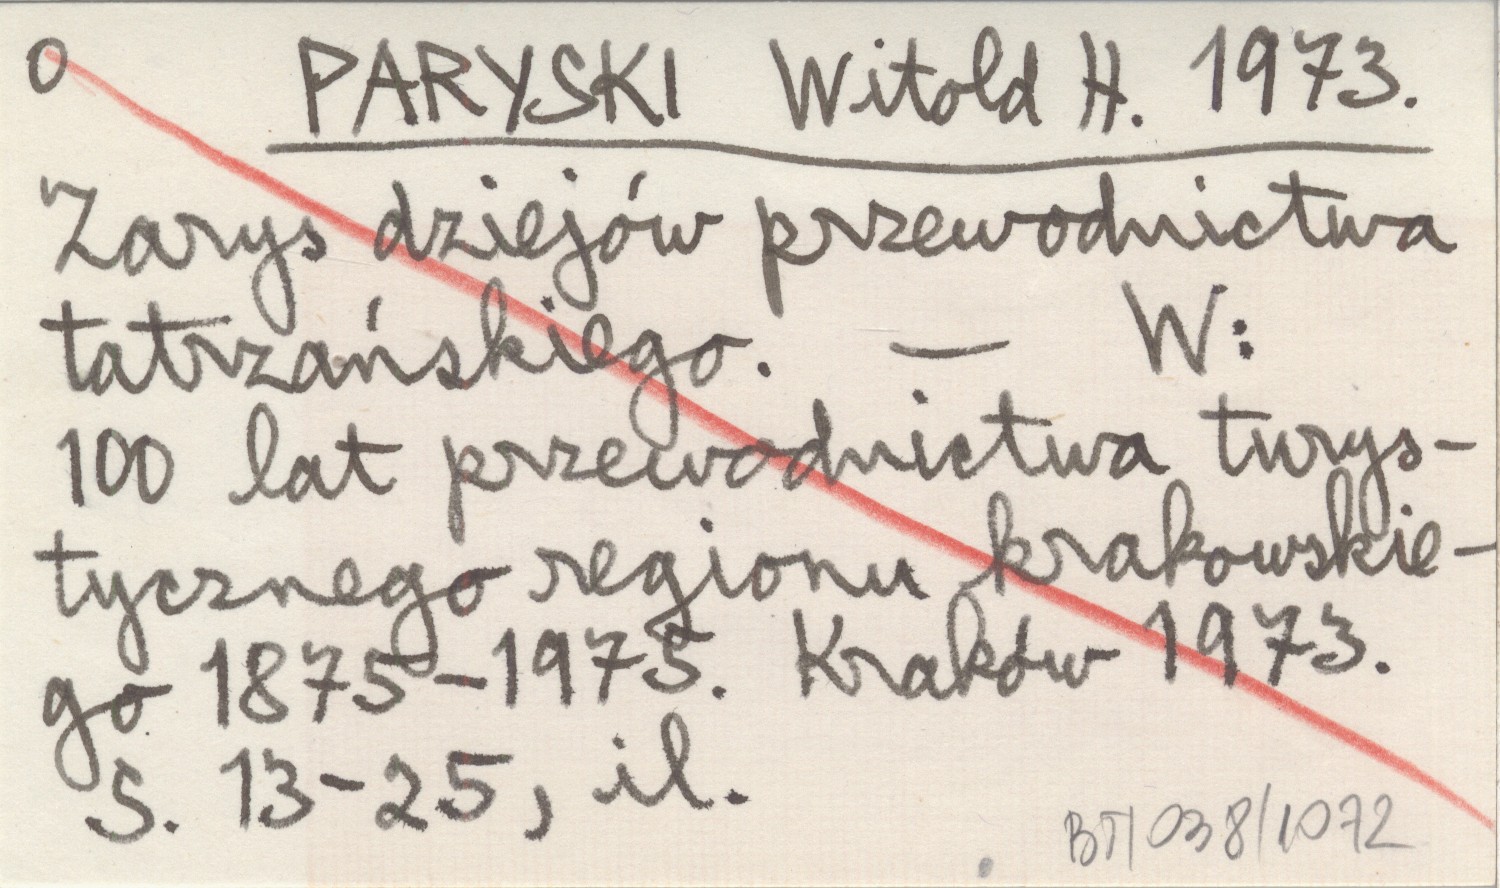 O PARYSKI Witold H. 1973.
Zarys dziejów przewodnictwa
tatrzańskiego. — W:
100 lat przewodnictwa turys-
tycznego regionu krakowskie-
go 1875-1975. Kraków 1973.
S. 13-25, il.
BT/038/1072